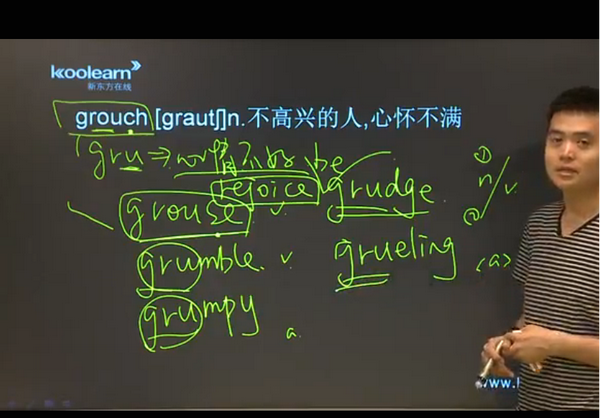 koolearn
新东方在线
grouch [grautʃ]n.不高兴的人,心怀不满
gru ⇒ be
rejoice grudge. ① n/v ②
grouse v.
grumble. v. grueling <a>
grumpy a.
www.